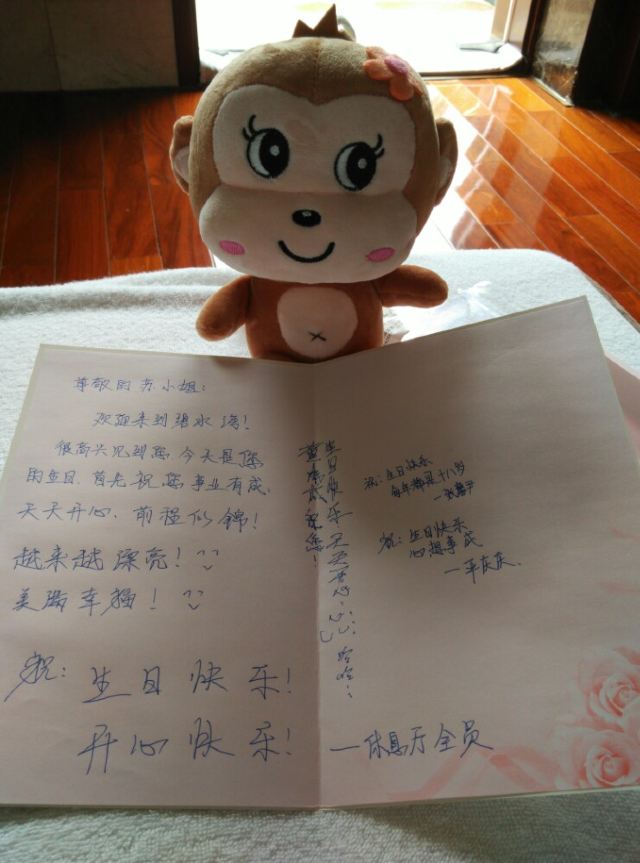 尊敬的苏小姐:
欢迎来到碧水湾!
很高兴见到您,今天是您
的生日,首先祝您事业有成,
天天开心,前程似锦!
越来越漂亮!
美满幸福!
祝:生日快乐!
开心快乐!
祝您!
生日快乐天天开心 哈哈!
祝:生日快乐
每年都是十八岁
祝:生日快乐
心想事成
—休息厅全员